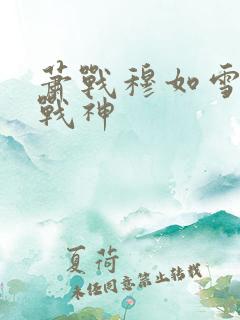 萧戰穆如雪
戰神
夏荷
未经同意禁止转载